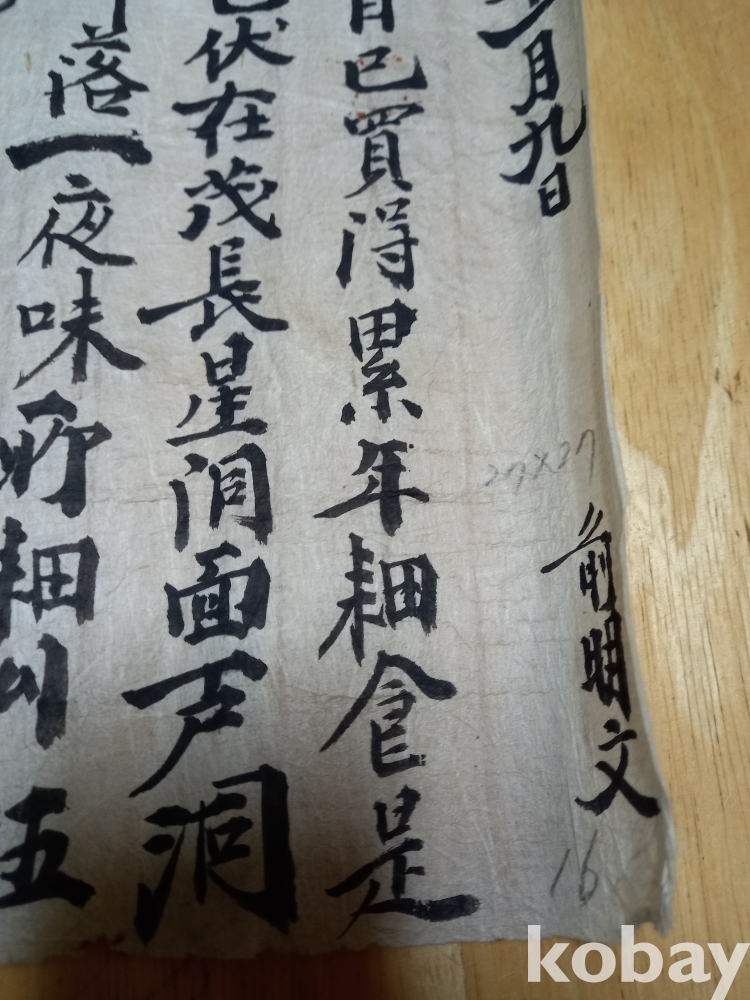 月九日 前明文
日已買得累年耕食是
伏在茂長星洞面 洞
落一夜味所耕川五
27×27
16
kobay